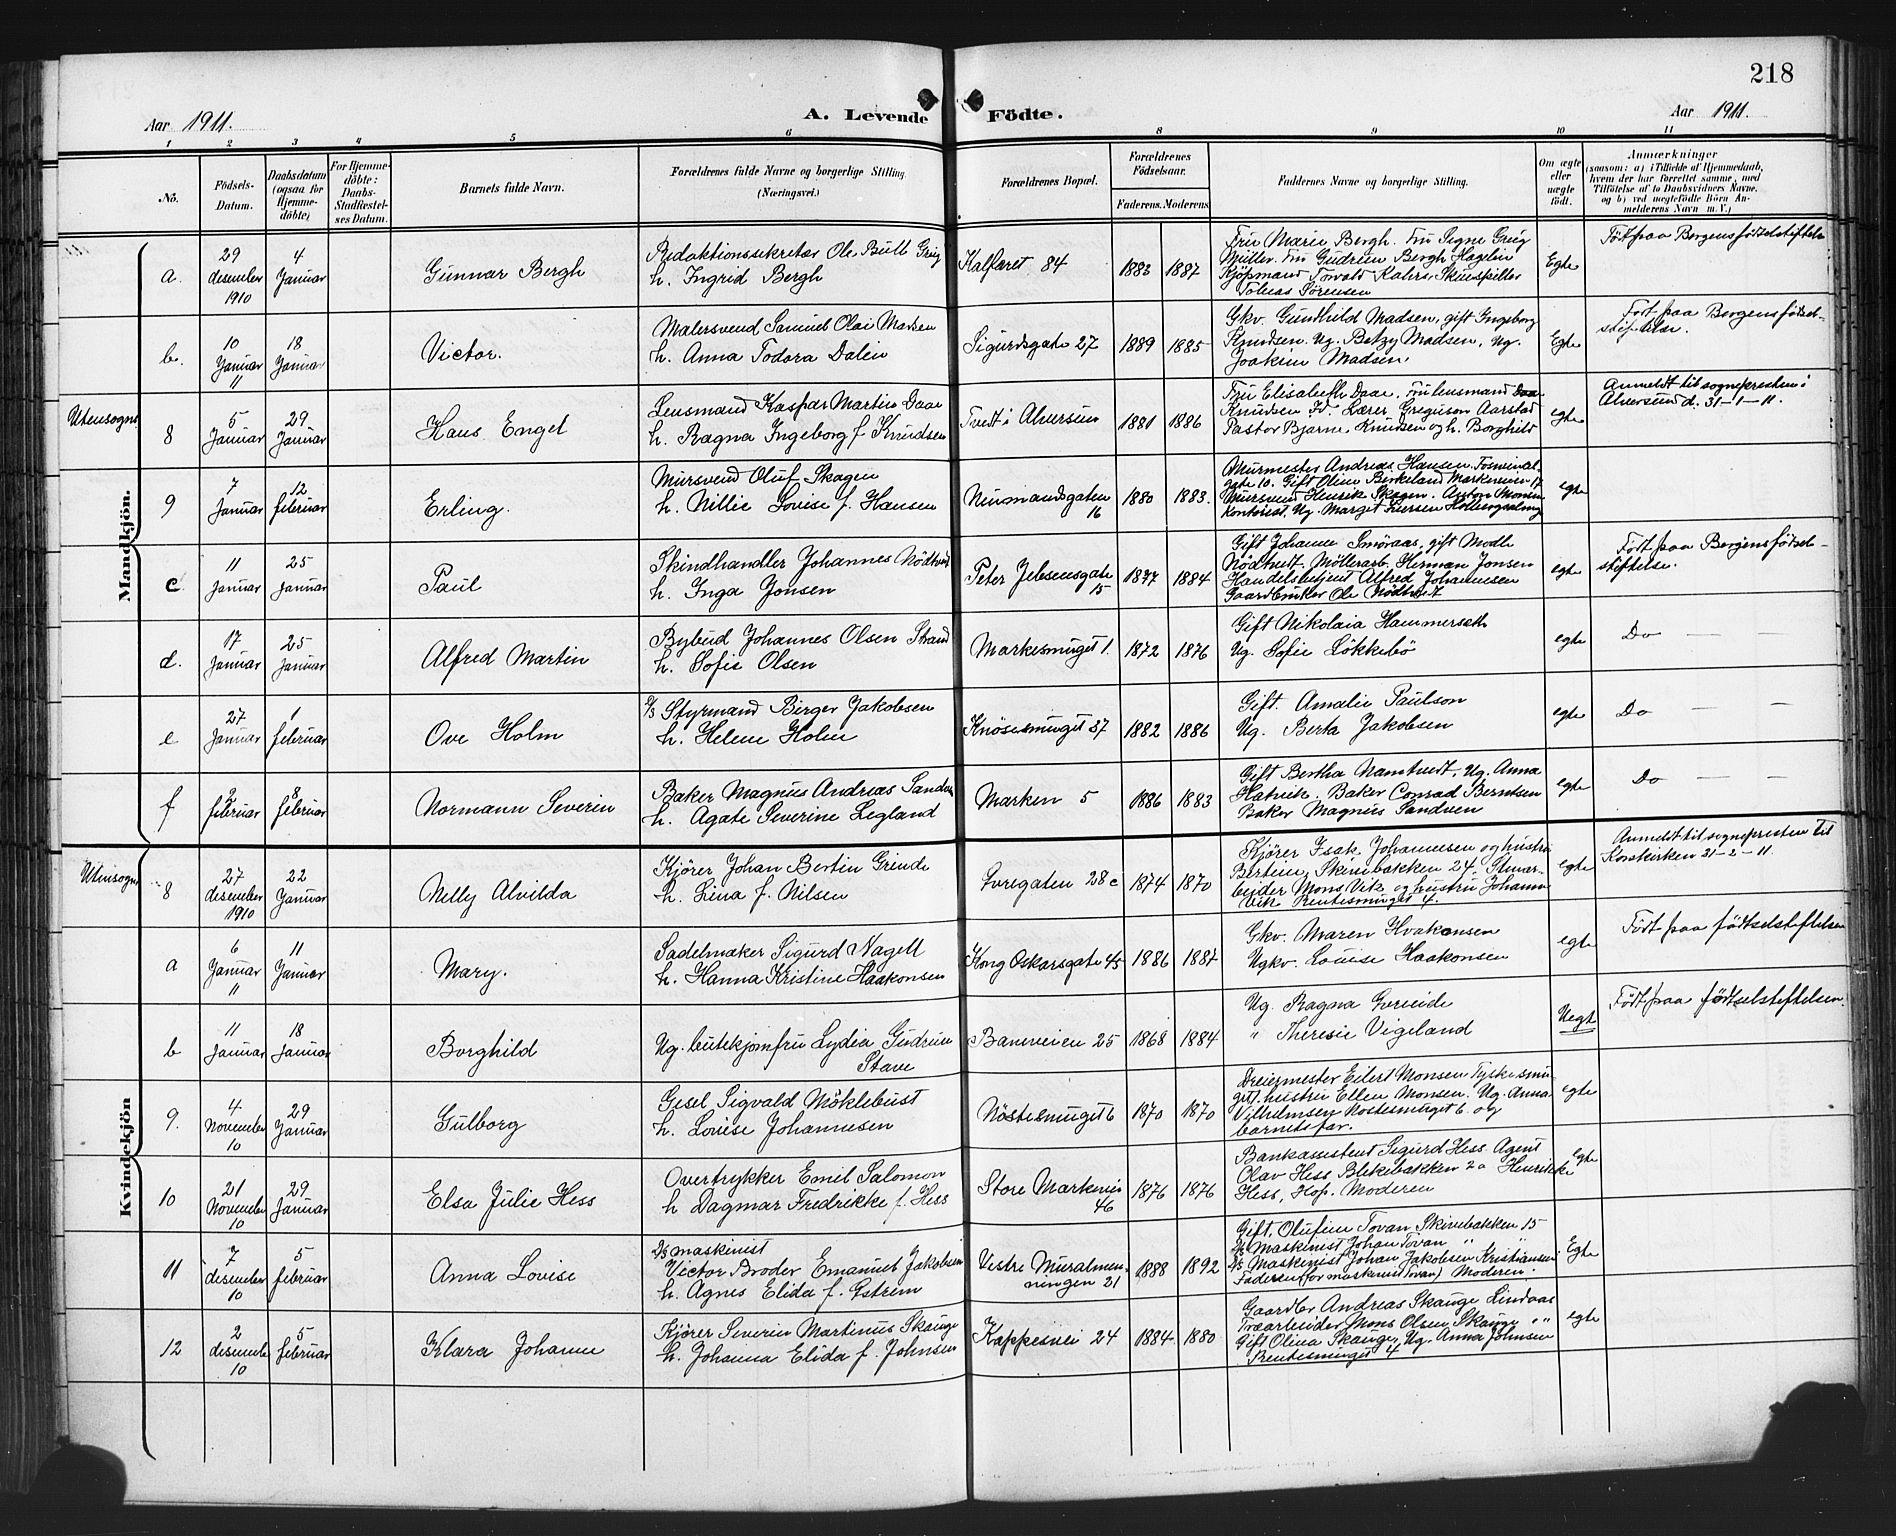 218
Aar 1911. A. Levende Födte. Aar 1911.
1 2 3 4 5 6 8 9 10 11
No. Födsels-Datum. Daabsdatum (ogsaa for Hjemmedöbte) For Hjemmedöbte: Daabs-Stadfestelses Datum. Barnets fulde Navn. Forældrenes fulde Navne og borgerlige Stilling. (Næringsvei.) Forældrenes Bopæl. Forældrenes Födselsaar. Faderens. Moderens. Faddernes Navne og borgerlige Stilling. Om ægte eller uægte födt. Anmærkninger (saasom: a) i Tilfælde af Hjemmedaab, hvem der har forrettet samme, med Tilföielse af to Daabsvidners Navne, og b) ved uægtefödte Börn Anmelderens Navn m. V.)
Mandkjön.
a. 29 desember 1910 4 Januar Gunnar Bergh
Redaktionssekretær Ole Bull Grieg
h. Ingrid Bergh
Kalfaret 84 1883 1887
Fru Marie Bergh. Fru Signe Grieg
Müller. Fru Gudrun Bergh Hagelin
Kjöpmand Torvald Skuespiller
Tobias Sörensen
Egte Födt paa Bergens födselstiftelse
b. 10 Januar 11 18 Januar Victor.
Malersvend Samuel Olai Madsen
h. Anna Todora Dalen
Sigurdsgate 27 1889 1885
Gkv. Gunhild Madsen, gift Ingeborg
Knudsen. Ug. Betzy Madsen, Ug.
Joakim Madsen
Egte Födt paa Bergens födsel-
stiftelse.
Utensogns
8 5 Januar 29 Januar Hans Engel
Lensmand Kaspar Martin Daae
h. Ragna Ingeborg f. Knudsen
Tvedt i Alversund 1881 1886
Fru Elisabeth Daae. Fru lensmand
Knudsen Lærer Gregerson Aarstad
Pastor Bjarne Knudsen og h. Borghild
egte Anmeldt til sognepresten i
Alversund d. 31-1-11.
9 7 Januar 12 februar Erling.
Mursvend Oluf Skagen
h. Nillie Lovise f. Hansen
Neumandsgaten 16 1880 1883.
Murmester Andreas Hansen
gate 10. Gift Oline Birkeland Markeveien 17
Mursvend Henrik Skagen. Anton Monsen
kontorist. Ug. Marget Iversen
egte
c. 11 Januar 25 Januar Paul
Skindhandler Johannes Nödtvedt
h. Inga Jonsen
Peter Jebsensgate 15 1877 1884
Gift Johanne Smöraas, gift Modle
Nödtvedt. Möllerarb. Herman Jonsen
Handelsbetjent Alfred Johannesen
Gaardbruker Ole Nödtvedt
egte Födt paa Bergens födsel-
stiftelse.
d. 17 Januar 25 Januar Alfred Martin
Bybud Johannes Olsen Strand
h. Sofie Olsen
Markesmuget 1. 1872 1876
Gift Nikolaia Hammerseth
Ug. Sofie Lökkebö
egte Do — —
e 27 Januar 1 februar Ove Holm
D/S Styrmand Birger Jakobsen
h. Helene Holm
Knösesmuget 37 1882 1886
Gift. Amalie Paulson
Ug. Berta Jakobsen
egte Do — —
f 2 februar 8 februar Normann Severin
Baker Magnus Andreas Sandven
h. Agate Severine Legland
Marken 5 1886 1883
Gift Bertha Namtvedt, Ug. Anna
Hatvik. Baker Conrad Berntsen
Baker Magnus Sandven
egte Do — —
Kvindekjön
Utensogns
8 27 desember 1910 22 Januar Nelly Alvilda
Kjörer Johan Bertin Grinde
h. Lina f. Nilsen
Øvregaten 28 c 1874 1870
Kjörer Isak Johannesen og hustru
Bertine, Skivebakken 24, Stuar-
beider Mons Vik og hustru Johanne
Vik Rentesmuget 4.
egte Anmeldt til sognepresten til
Korskirken 31-2-11.
a 6 Januar 11 11 Januar Mary.
Sadelmaker Sigurd Nagell
h. Hanna Kristine Haakonsen
Kong Oskarsgate 45 1886 1887
Gkv. Maren Haakonsen
Ugkv. Louise Haakonsen
egte Födt paa födselstiftelsen
b 11 Januar 18 Januar Borghild
Ug. butikjomfru Lydia Gudrun
Stave
Baneveien 25 1868 1884
Ug. Ragna Øvreeide
" Theresie Vigeland
Uegt Födt paa födselstiftelsen.
9. 4 November 10 29 Januar Gulborg
Gesel Sigvald Möklebust
h. Lovise Johannesen
Nöstesmuget 6 1870 1870
Dreiermester Eilert Monsen Tyskesmu-
get 1. hustru Ellen Monsen. Ug. Anna
Vilhelmsen Nostesmuget 6. og
barnets far.
egte
10 21 November 10 29 Januar Elsa Julie Hess
Overtrykker Emil Salomon
h Dagmar Fredrikke f. Hess
Store Markevei 46 1876 1876
Bankassistent Sigurd Hess. Agent
Olav Hess Blekebakken 2a Henrikke
Hess, Hop. Moderen
egte
11 7 desember 10 5 februar Anna Lovise
D/S maskinist
Victor Broder Emanuel Jakobsen
h. Agnes Elida f. Øström
Vestre Muralmen-
ningen 21 1888 1892
Gift. Olufine Tovan Skivebakken 15
D/S Maskinist Johan Tovan " "
D/S Maskinist Johan Jakobsen Kristiansen
Faderen (for maskinist Tovan) Moderen.
Egte
12 2 desember 10 5 februar Klara Johanne
Kjörer Severin Martinus Skauge
h. Johanna Elida f. Johnsen
Kappesvei 24 1884 1880
Gaardbr Andreas Skauge Lindaas
Træarbeider Mons Olsen Skauge " "
Gift Olina Skauge, Ug. Anna Johnsen
Rentesmuget 4
egte